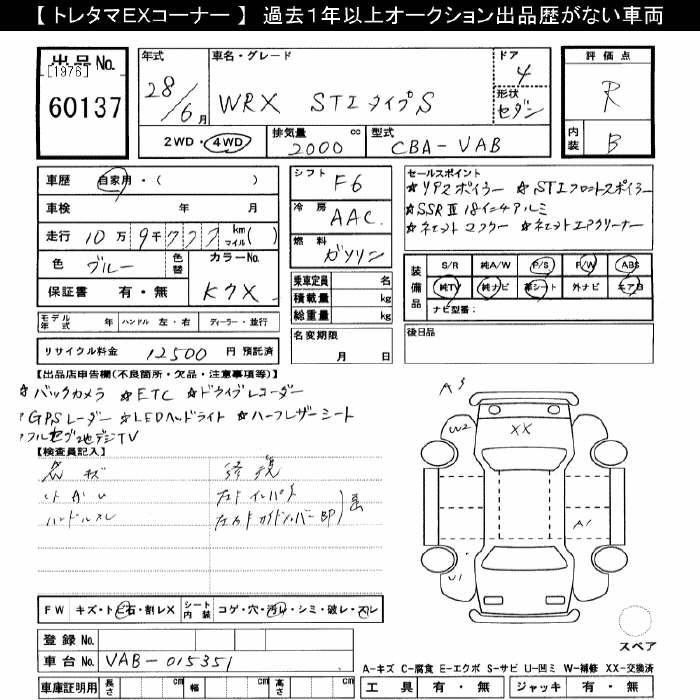 【 トレタマEXコーナー 】 過去1年以上オークション出品歴がない車両
出品 No.
[1976]
60137
年式
28/6月
車名・グレード
WRX STI タイプS
ドア
4
形状
セダン
評価点
R
内装
B
2WD・4WD
排気量 cc
2000
型式
CBA-VAB
車歴 自家用・( )
車検 年 月
走行 10万9千777 km マイル( )
色 ブルー
色替
カラーNo.
K7X
保証書 有・無
モデル年式 年 ハンドル 左・右 ディーラー・並行
リサイクル料金 12500 円 預託済
シフト F6
冷房 AAC
燃料 ガソリン
乗車定員 名
積載量 kg
総重量 kg
名変期限
月 日
セールスポイント
☆リアスポイラー ☆STIフロントスポイラー
☆SSR 18インチアルミ
装備品
S/R 純A/W P/S P/W ABS
純TV 純ナビ 革シート 外ナビ エアB
ナビ型番：
後日品
【出品店申告欄(不良箇所・欠品・注意事項等)】
☆バックカメラ ☆ETC ☆ドライブレコーダー
GPSレーダー ☆LEDヘッドライト ☆ハーフレザーシート
フルセグ地デジTV
【検査員記入】
ハンドルスレ
修
インパネ
サイドメンバー BP
A3
W2
XX
A1
U1
FW キズ・ト・石・割レX
シート内装 コゲ・穴・汚レ・シミ・破レ・スレ
登録 No.
車台 No. VAB-015351
車庫証明用 長さ cm 幅 cm 高さ cm
スペア
A-キズ C-腐食 E-エクボ S-サビ U-凹ミ W-補修 XX-交換済
工具 有・無 ジャッキ 有・無